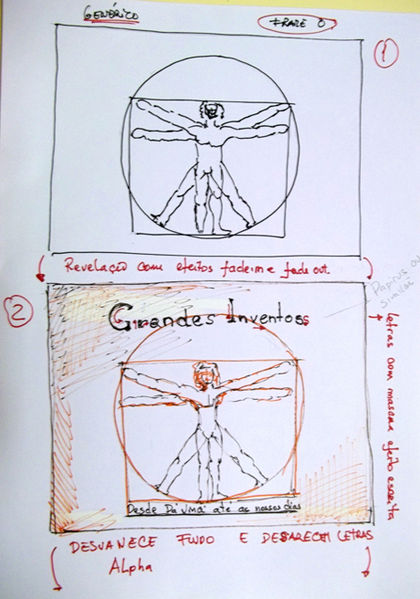 GENÉRICO
FRAME 0
1
Revelação com efeitos fadein e fade out.
2
Grandes Inventos
Papirus ou
similar
letras com mascara efeito escrita
Desde Da Vinci até aos nossos dias
DESVANECE FUNDO E DESAPARECEM LETRAS
Alpha